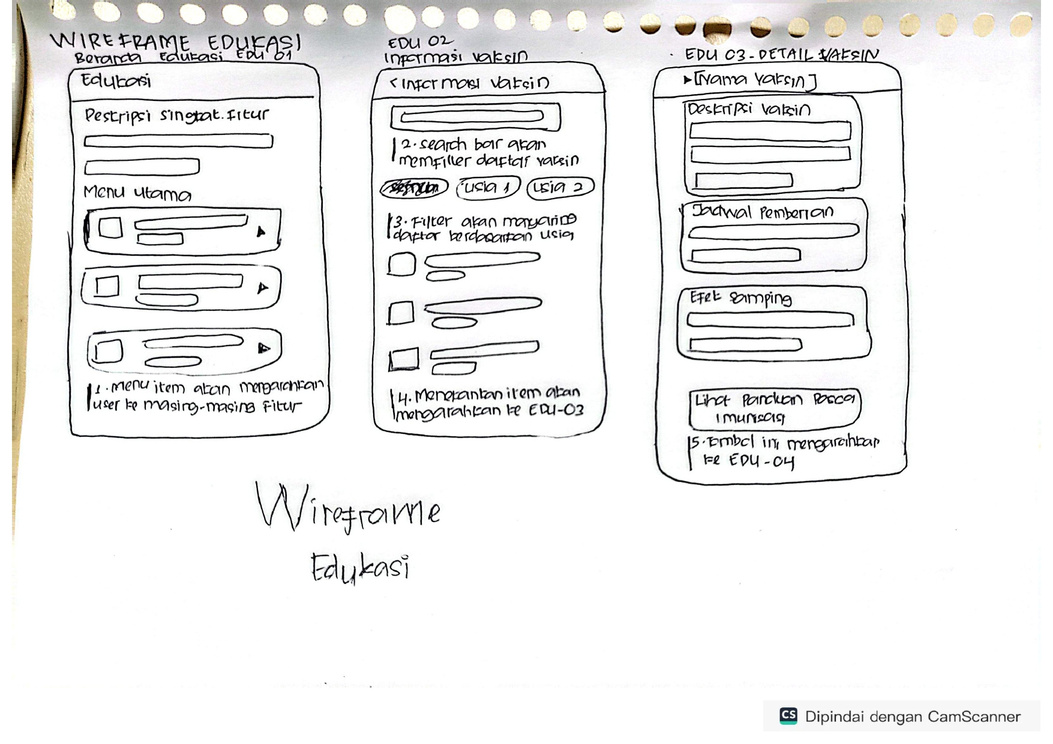 WIREFRAME EDUKASI
Beranda Edukasi EDU 01
Edukasi
Deskripsi singkat fitur
Menu utama
1. Menu item akan mengarahkan
user ke masing-masing Fitur
EDU 02
Informasi vaksin
< Informasi vaksin
2. search bar akan
memfilter daftar vaksin
usia 1
usia 2
3. Filter akan menyaring
daftar berdasarkan usia
4. Menekan item akan
mengarahkan ke EDU-03
EDU 03 - DETAIL VAKSIN
[Nama vaksin]
Deskripsi vaksin
Jadwal Pemberian
Efek samping
Lihat Panduan Pasca
imunisasi
5. Tombol ini mengarahkan
ke EDU-04
Wireframe
Edukasi
CS Dipindai dengan CamScanner